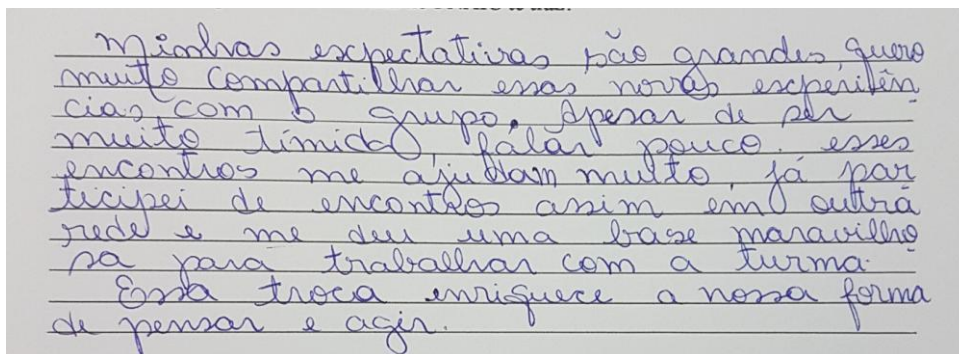 Minhas expectativas são grandes, quero
muito compartilhar essas novas experiên
cias com o grupo. Apesar de ser
muito tímida, falar pouco. esses
encontros me ajudam muito, já par
ticipei de encontros assim em outra
rede e me deu uma base maravilho
sa para trabalhar com a turma.
Essa troca enriquece a nossa forma
de pensar e agir.